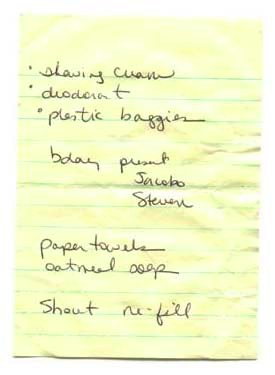 • shaving cream
• deodorant
• plastic baggies
bday present
Jacobo
Steven
paper towels
oatmeal soap
Shout re-fill